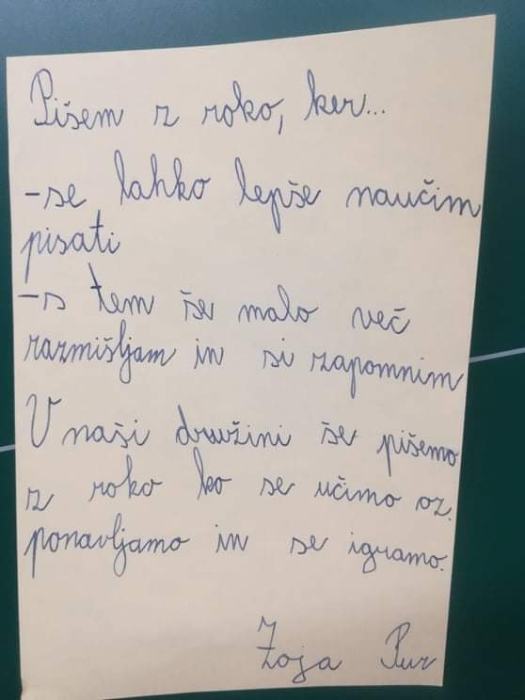 Pišem z roko, ker...
-se lahko lepše naučim
pisati
-s tem še malo več
razmišljam in si zapomnim
V naši družini še pišemo
z roko ko se učimo oz.
ponavljamo in se igramo.
Zoja Pur